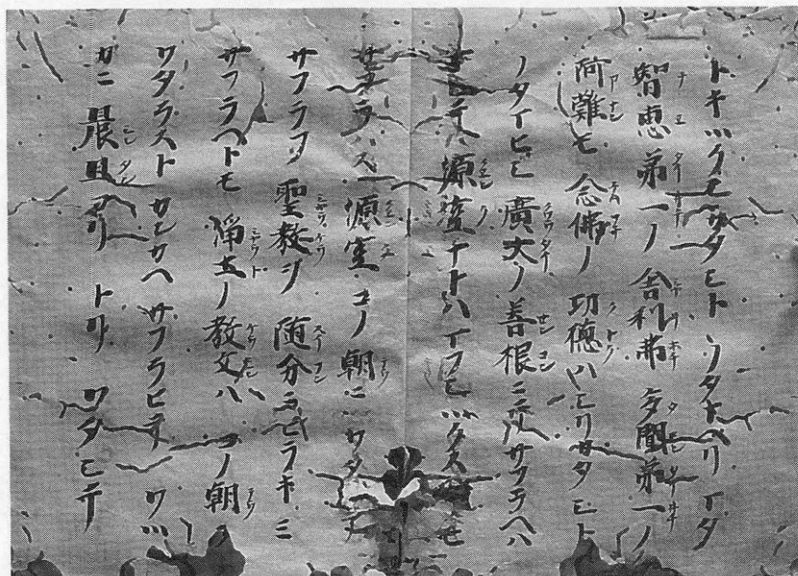 トキツクシカタシト ノタマヘリ マタ
智恵第一ノ 舎利弗 多聞第一ノ
阿難モ 念佛ノ 功徳ハシリカタシト
ノタマヒシ 廣大ノ 善根ニテサフラヘハ
マシテ 源空ナトハ イフ ツクス
サフラハス 源空 コノ朝ニ ワタ
サフラフ 聖教ヲ 随分ニヒラキミ
サフラヘトモ 浄土ノ教文ハ コノ朝
ワタラスト カンカヘサフラヒテ ワツ
カニ 晨旦ヨリ トリ ワタシテ